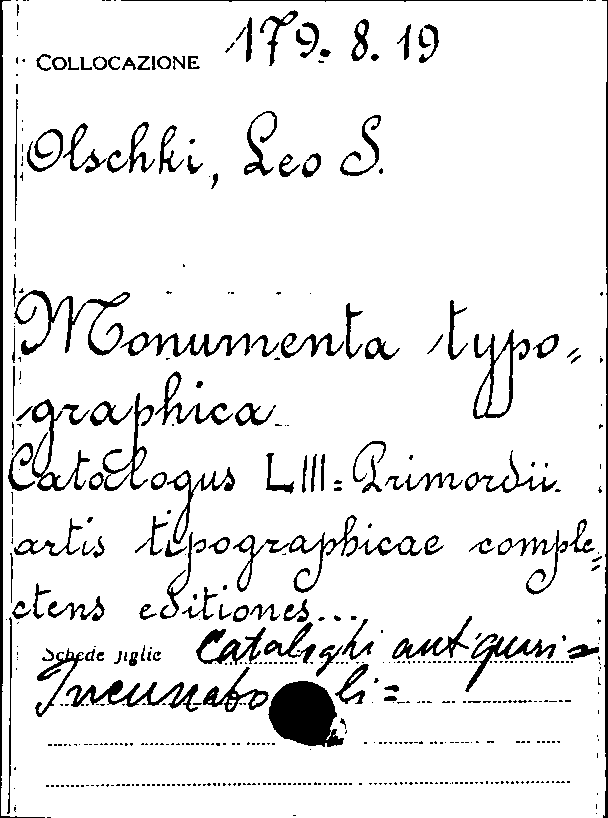 COLLOCAZIONE 179. 8. 19
Olschki, Leo S.
Monumenta typo=
graphica
Catalogus LIII= Primordii
artis tipographicae comple=
ctens editiones...
Schede figlie Cataloghi antiquari=
Incunaboli=